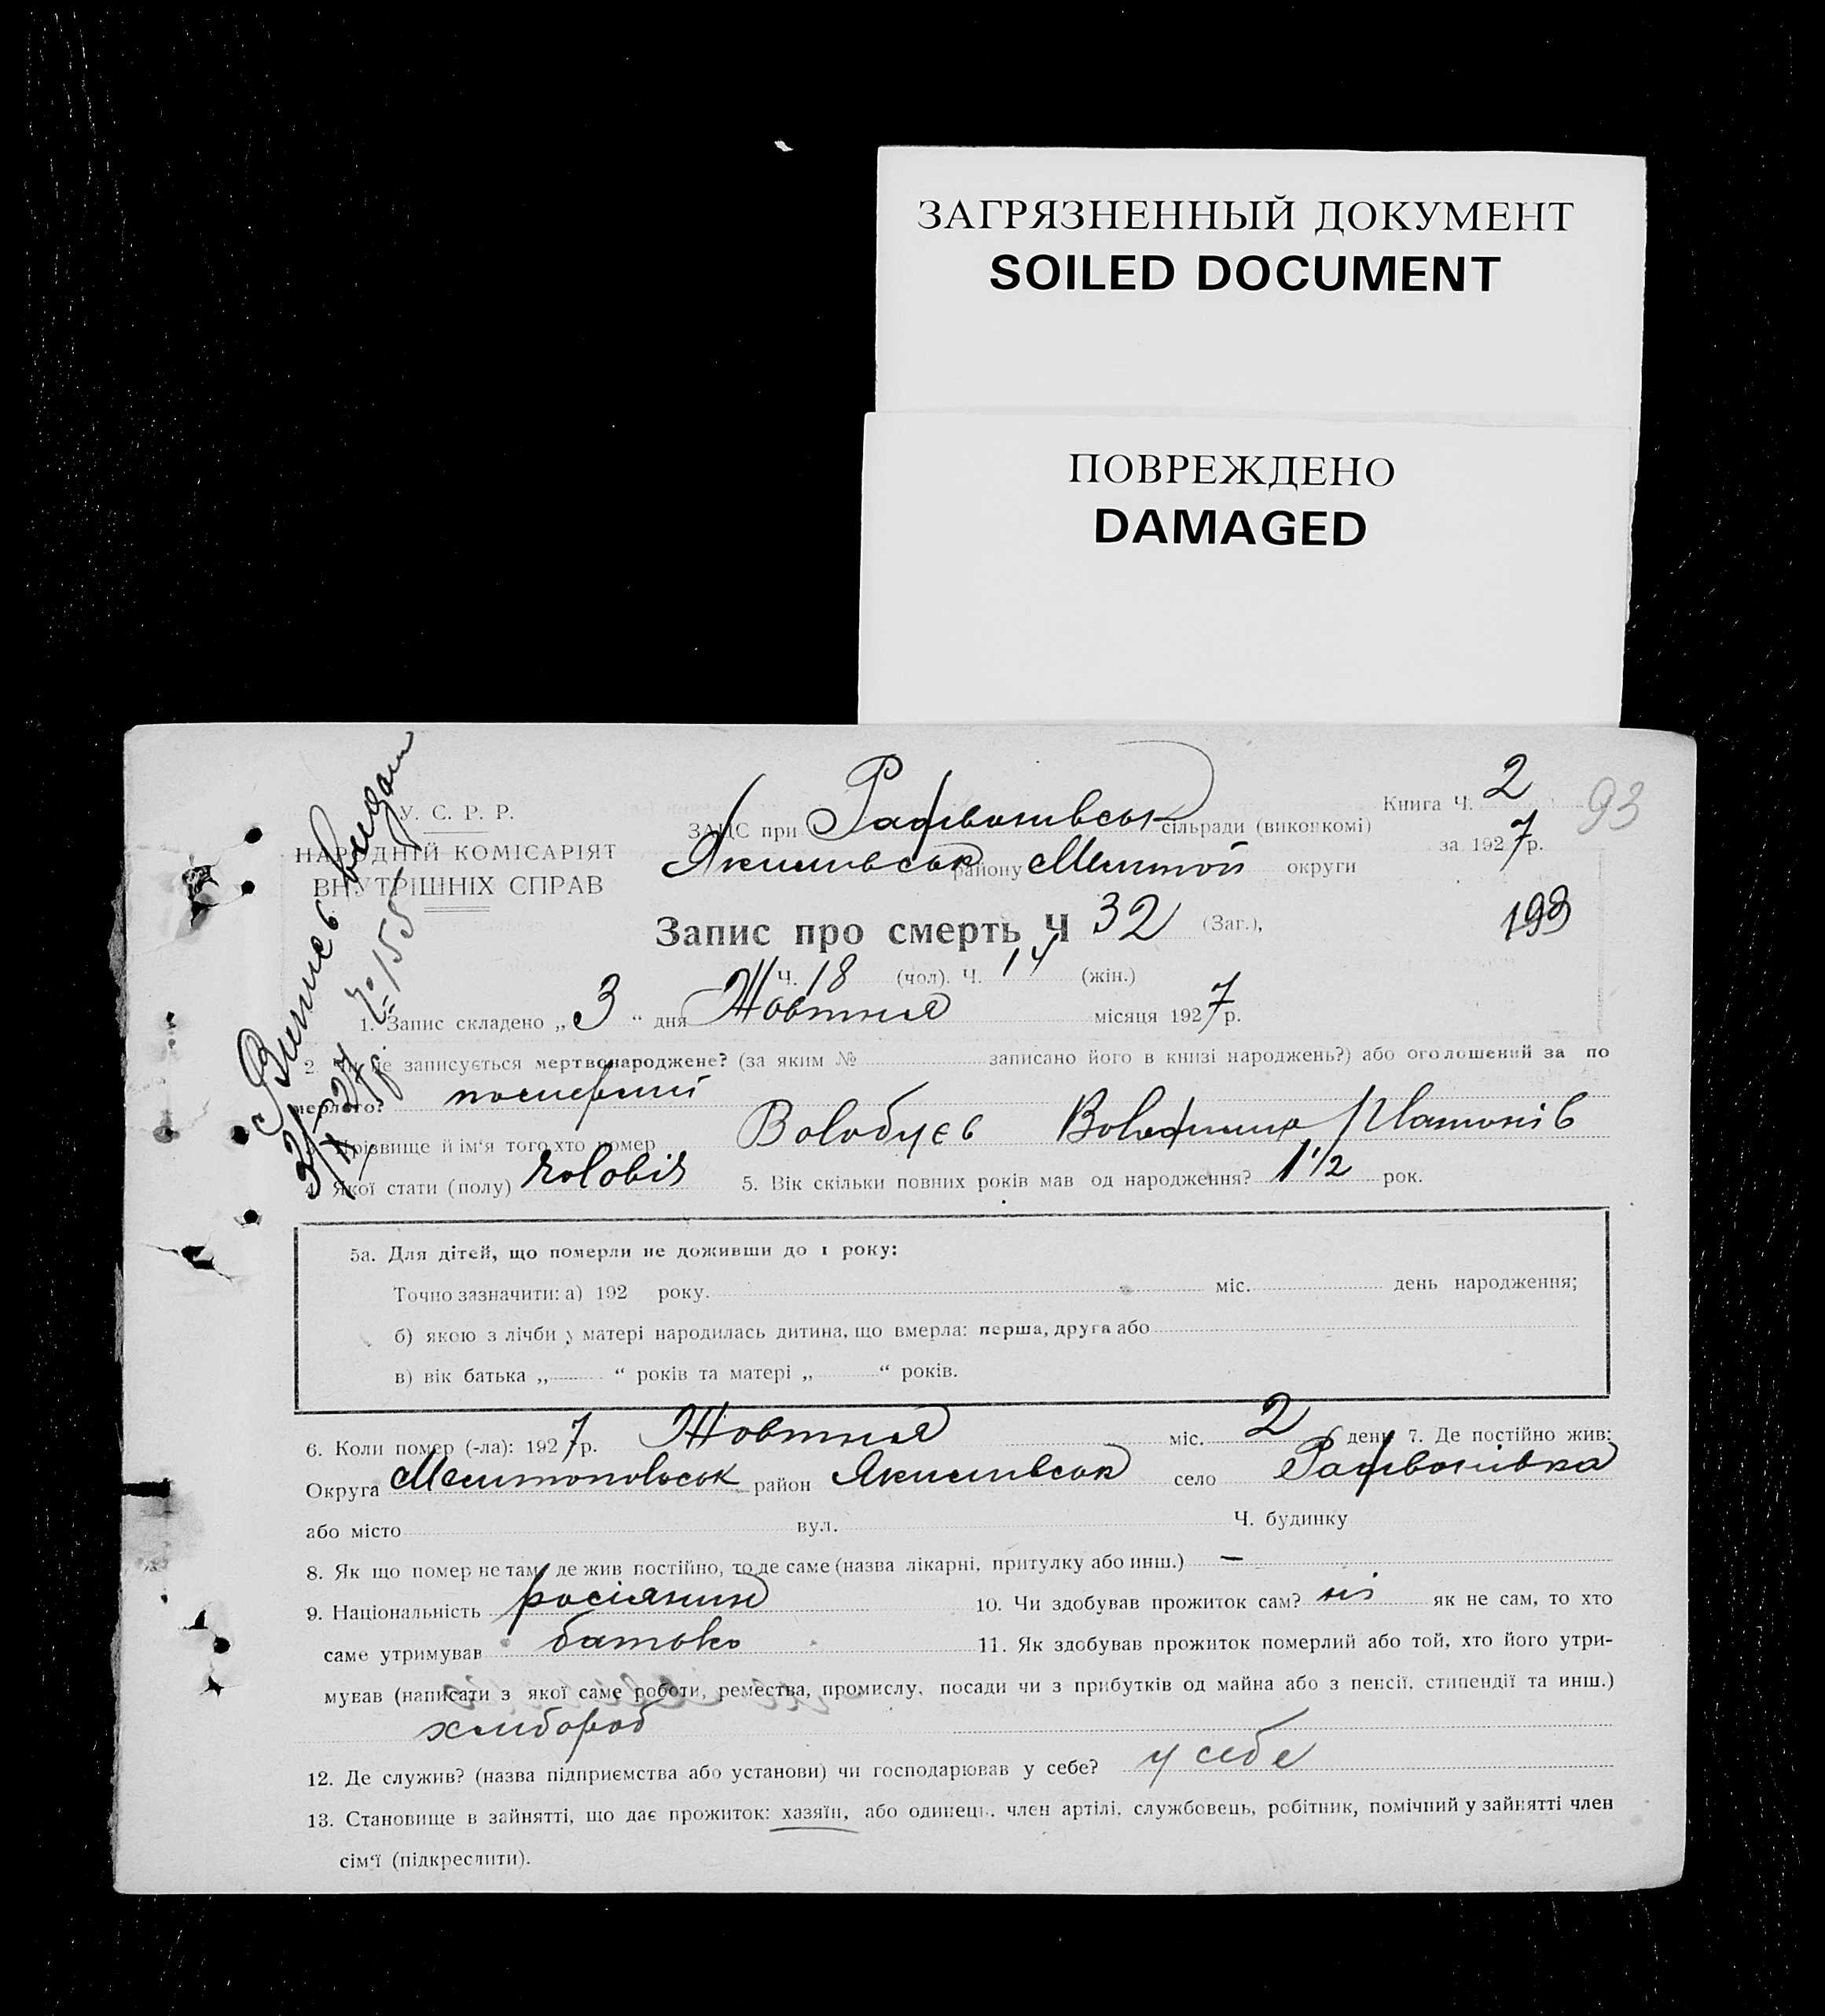 ЗАГРЯЗНЕННЫЙ ДОКУМЕНТ
SOILED DOCUMENT
ПОВРЕЖДЕНО
DAMAGED
Книга Ч. 2
93
У. С. Р. Р.
НАРОДНІЙ КОМІСАРІЯТ
ВНУТРІШНІХ СПРАВ
ЗАПС при Радивонівськ сільради (виконкомі)
за 1927 р.
Якимівськ району Мелитоп округи
Запис про смерть Ч 32 (Заг.),
193
Ч. 18 (чол). Ч. 14 (жін.)
Випис видан
№ 155
1. Запис складено „ 3 “ дня Жовтня місяця 1927 р.
2. Чи не записується мертвонароджене? (за яким № записано його в книзі народжень?) або оголошений за по
мерлого? померший
Прізвище й ім‘я того хто помер Волобуєв Володимир Платонів
4. Якої стати (полу) чоловіч 5. Вік скільки повних років мав од народження? 1 1/2 рок.
5а. Для дітей, що померли не доживши до 1 року:
Точно зазначити: а) 192 року. міс. день народження;
б) якою з лічби у матері народилась дитина, що вмерла: перша, друга або
в) вік батька „ “ років та матері „ “ років.
6. Коли помер (-ла): 1927 р. Жовтня міс. 2 день 7. Де постійно жив:
Округа Мелитопольськ район Якимівськ село Радивонівка
або місто вул. Ч. будинку
8. Як що помер не там, де жив постійно, то де саме (назва лікарні, притулку або инш.) —
9. Національність росіянин 10. Чи здобував прожиток сам? ні як не сам, то хто
саме утримував батько 11. Як здобував прожиток померлий або той, хто його утри-
мував (написати з якої саме роботи, ремества, промислу, посади чи з прибутків од майна або з пенсії, стипендії та инш.)
хлібороб
12. Де служив? (назва підприємства або установи) чи господарював у себе? у себе
13. Становище в зайнятті, що дає прожиток: хазяїн, або одинець, член артілі, службовець, робітник, помічний у зайнятті член
сім‘ї (підкреслити).